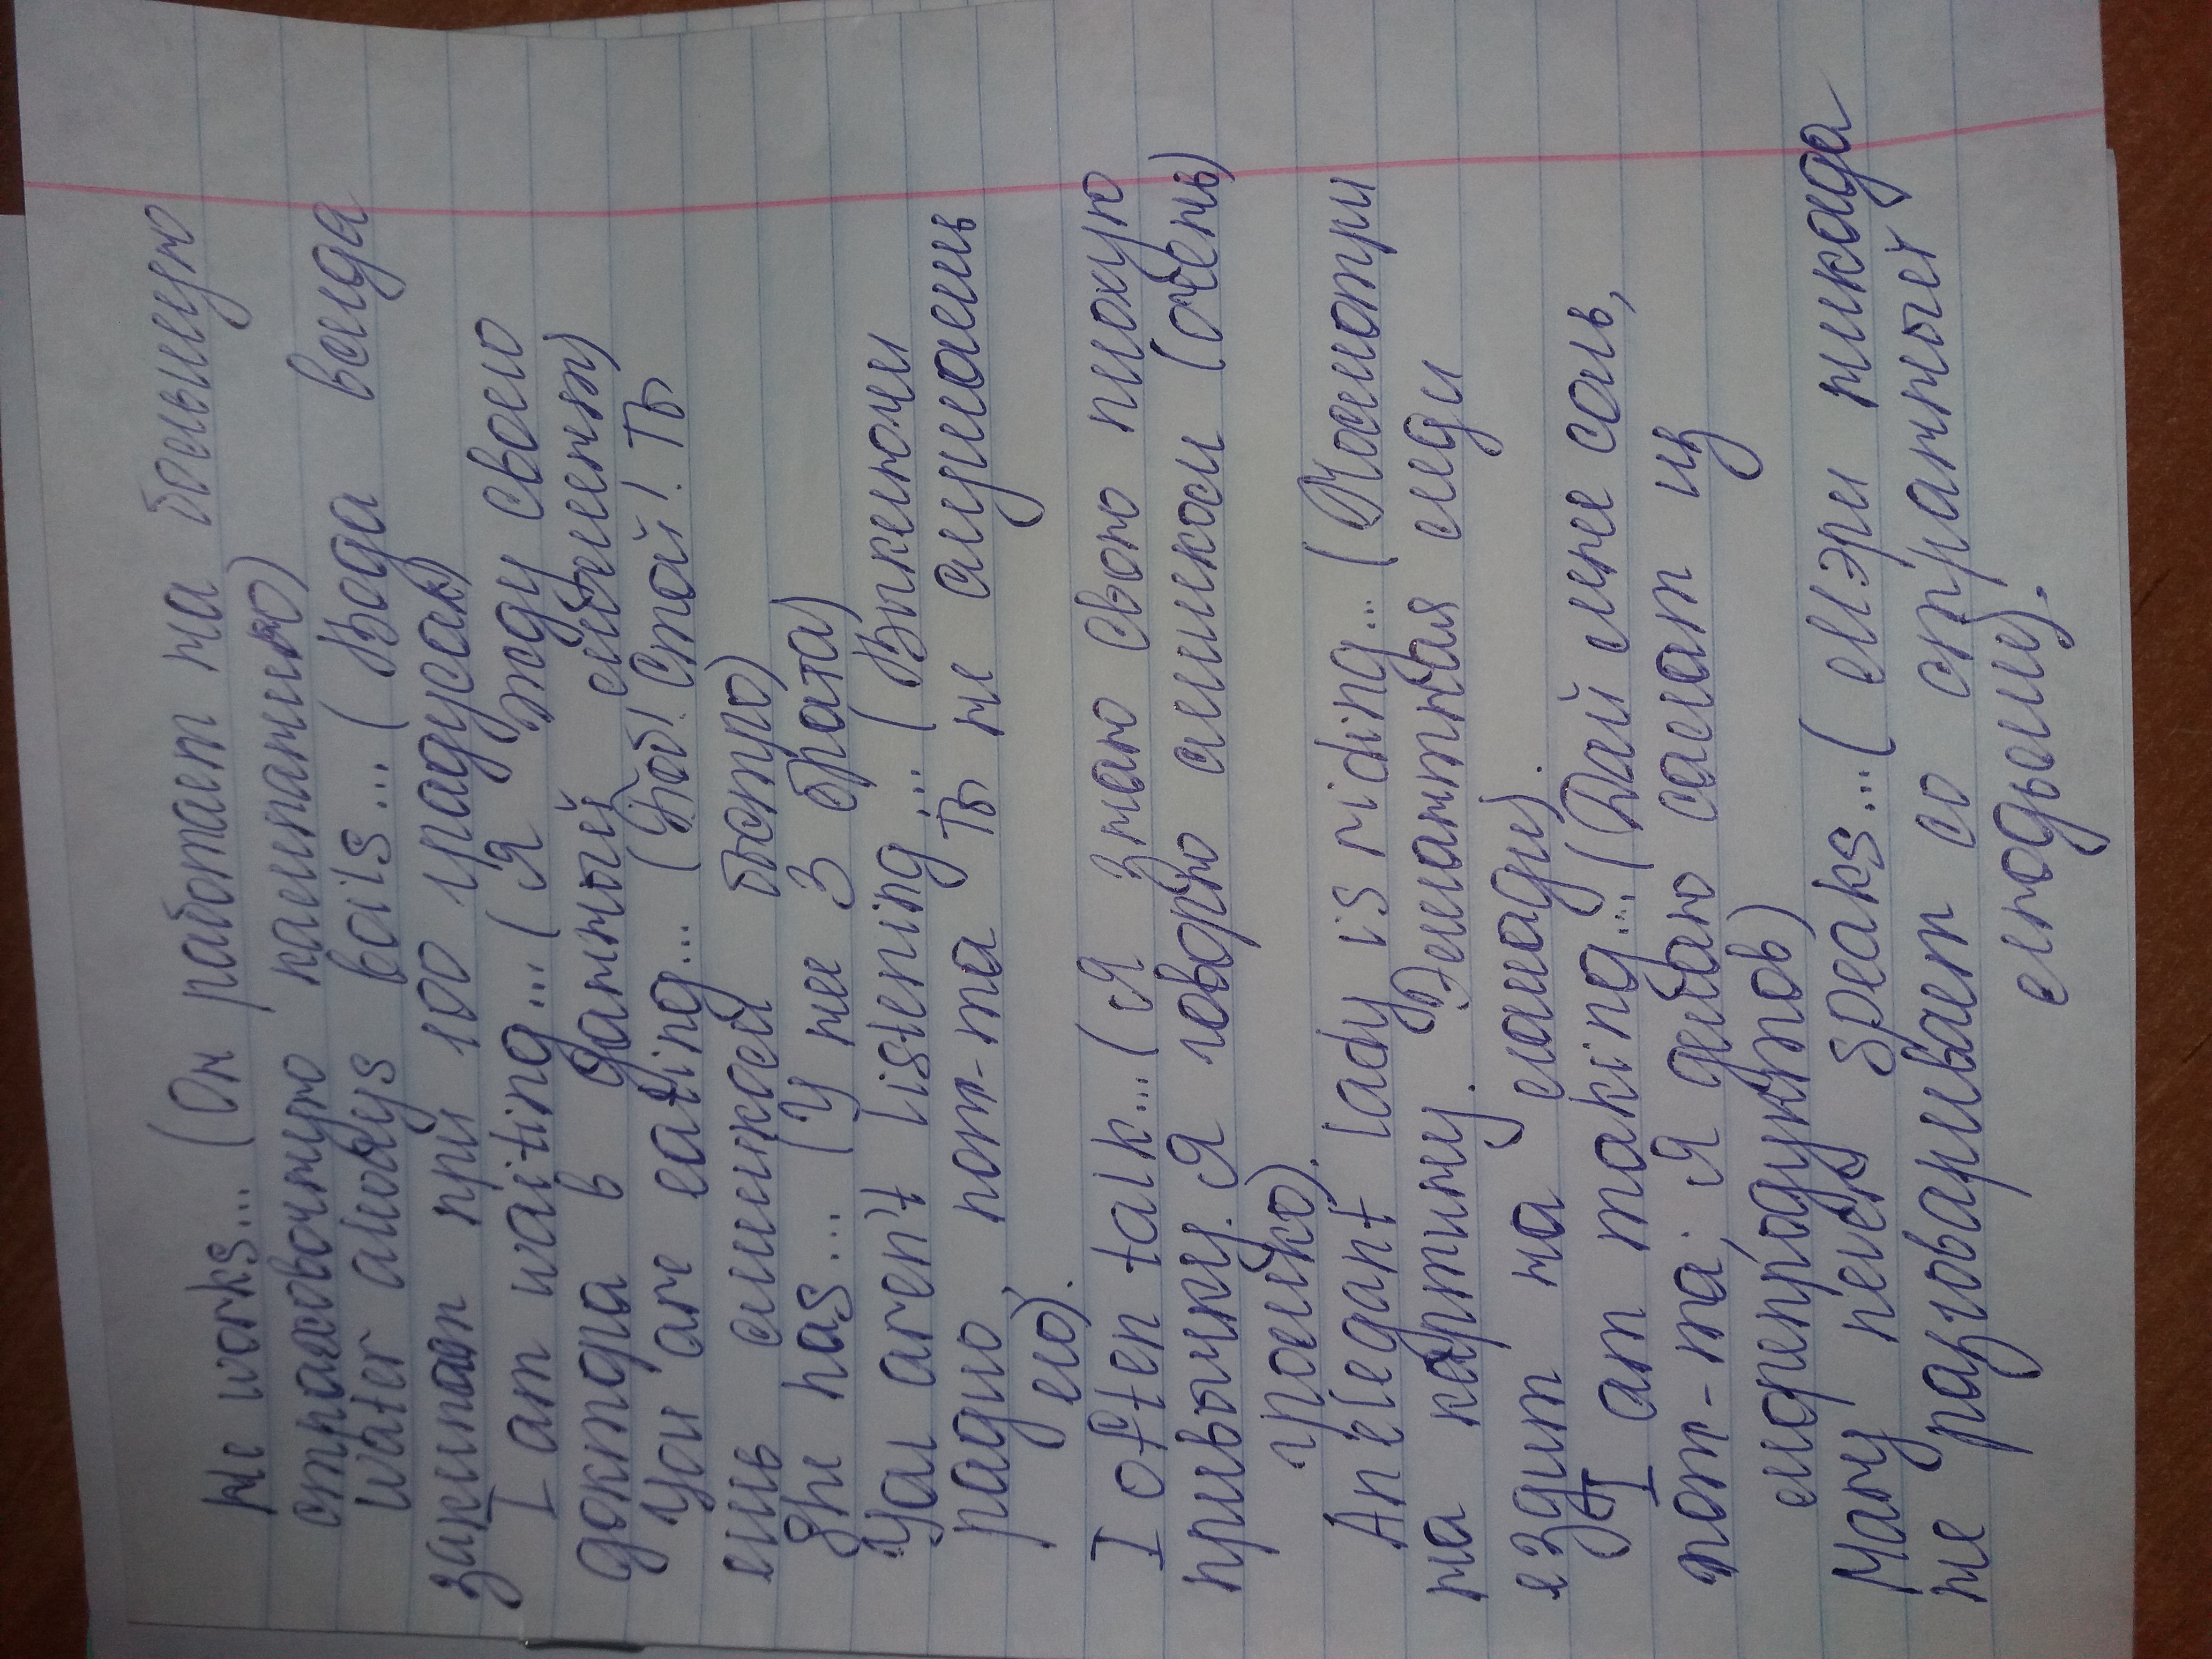 He works... (Он работает на большую
страховочную кампанию)
Water always boils... (Вода всегда
закипает при 100 градусах)
I am waiting... (Я жду своего
доктора в данный момент)
You are eating... (Боб! Стой! Ты
ешь слишком быстро)
She has... (У нее 3 брата)
You aren't listening... (Выключи
радио пот-та ты не слушаешь
его).
I often talk... (Я знаю свою плохую
привычку. Я говорю слишком (очень)
громко).
An elegant lady is riding... (Посмотри
на картину. Элегантная леди
ездит на лошади).
I am making... (Дай мне соль,
пот-та; я делаю салат из
морепродуктов)
Mary never speaks... (Мэри никогда
не разговаривает со странными
людьми).